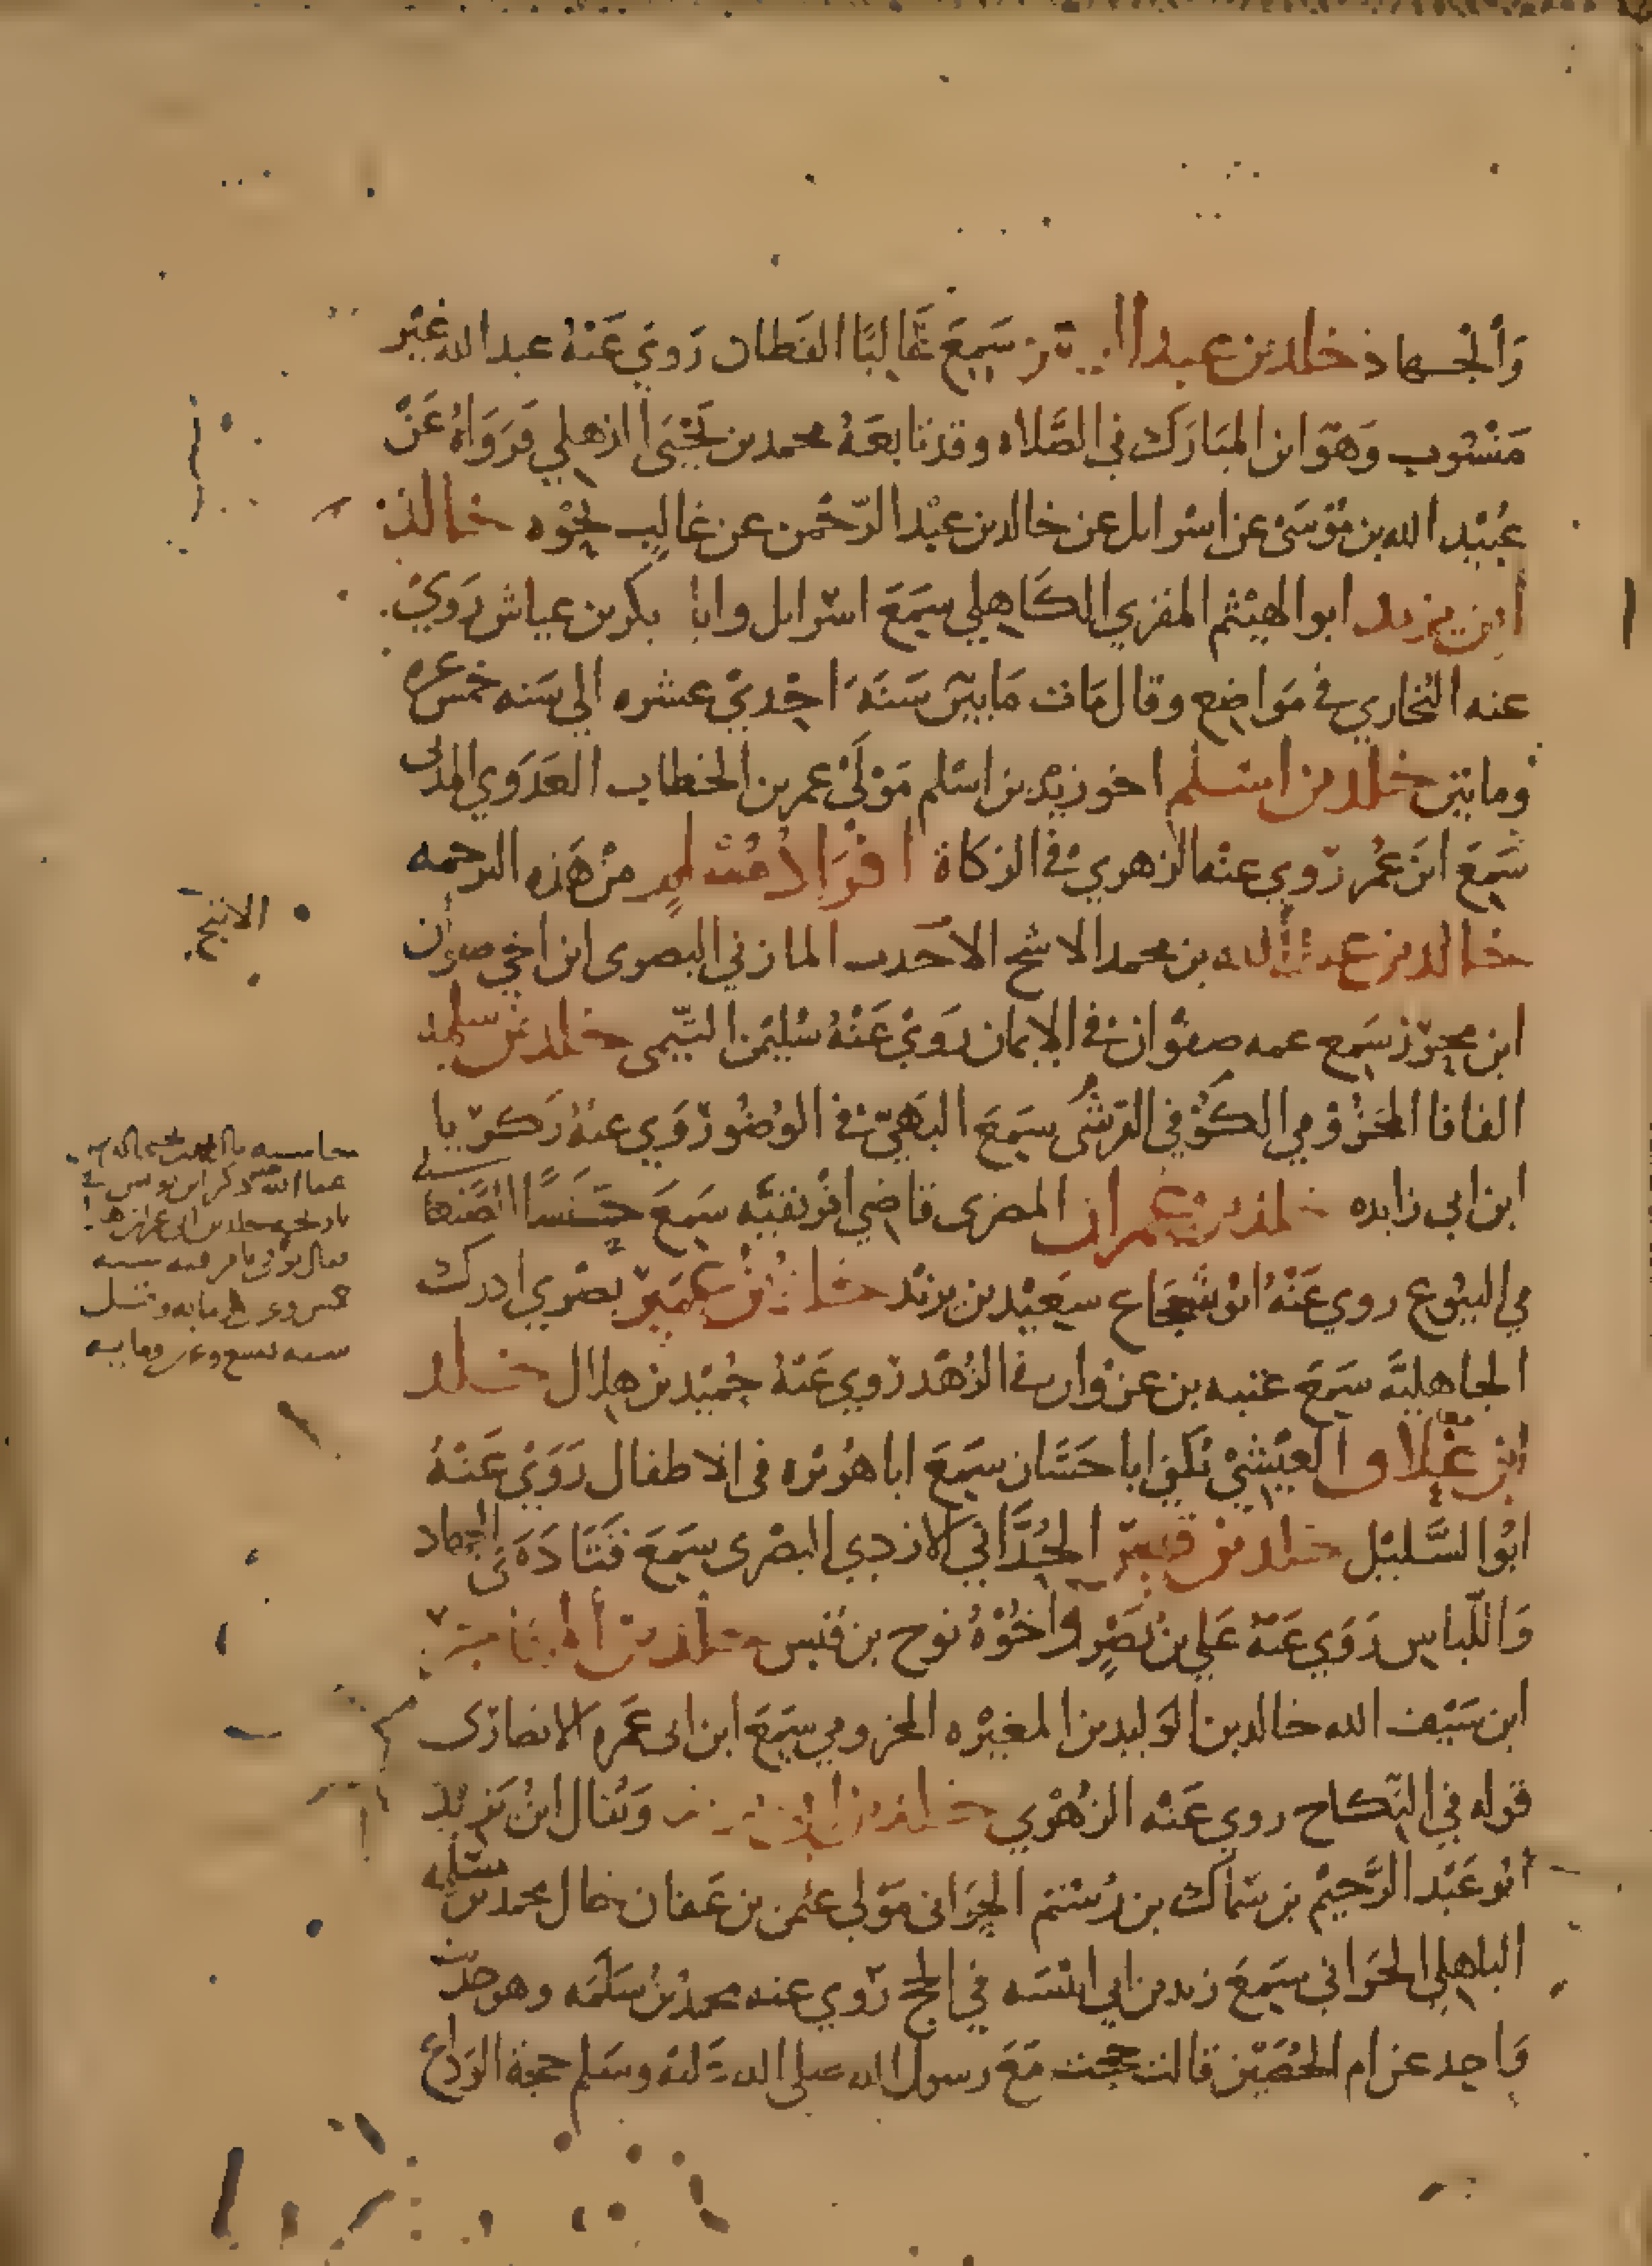 وَالجهاد خلد بن عبد الرحمن سَمِعَ غَالِبًا القطان رَويَ عَنْهُ عبد الله غَيْر
مَنْسُوب وَهوَ ابن المبَارَك في الصَّلاه وقد تابعَهُ محمد بن يَحْيَى الذهلي فَرَوَاهُ عَنْ
عُبَيْد الله بن مُوْسَى عن اسْرايل عن خالد بن عبْد الرّحْمن عن غَالِب نحْوه خالد
ابن يزيد ابو الهيْثم المقري الكَاهِلي سَمِعَ اسْرايل وابا بكر بن عياش رَوَيْ
عنه البُخاري في مَوَاضِع وقال مَات مَا بيْن سَنَةَ احْديْ عشره الي سَنه خمس عشره
وما يتين خلد بن اسْلم اخو زيْد بن اسْلم مَوْلَى عمر بن الخطاب العَدَوي المدني
سَمِعَ ابنَ عُمر رَوي عنْه الزهري في الزكاة افْرَادُ مُسْلمٍ مِنْ هَذِه الترجمه
خالد بن عبد الله بن محمد الاشج الاحدب المازني البصرى ابن اخي صفوان
ابن محرز سَمِع عمه صفوان في الايمان رَوَيْ عَنْهُ سُليمْن التيّمى خلد بن سلمه
الفافا المخزُوْمي الكُوْفي القرشُى سَمِعَ البَهيّ في الوُضُو رَوَي عنهُ زكريّا
ابن ابي زايده خلد بن عمران المصرى قاضي افْرِيقيَّه سَمِعَ حنَشًا الصَّنعاني
في البيُوع روي عَنْهُ ابُو شُجَاع سَعِيْد بن يزيْد خلد بْنُ عُمَيْر بَصْري ادرك
الجاهليَّه سَمِعَ عتبه بن غزوان في الزُهْد رَوي عَنْهُ حُمَيْد بن هِلال خلد
ابن غَلّاق العَيْشيْ يُكَنى ابا حَسَّان سَمِعَ ابا هُريْره في الاطفال رَوَيْ عَنْهُ
ابُوا السَّليْل خلد بن قيس الحُدَّاني الازدي البصْرى سَمِعَ قَتَادَهَ في الجهاد
وَاللّباس رَوَي عَنْهُ عَلي بنُ نَصْرٍ واخُوْهُ نوح بن قيس خلد بن المهاجر
ابن سَيْف الله خالد بن الوَليد بن المغيْره المخزومي سَمِعَ ابن ابى عَمْرَه الانصَارى
قوله في النِّكاح روي عَنْه الزُهْري خلد بن ابي يزيد وَيُقال ابنُ يَزِيْد
ابُو عَبْد الرَّحِيْم بن سمّاك بن رُسْتم الحرَّانى مَوْلى عثمن بن عَفان خال محمد بن سَلمه
الباهلي الحَرَاني سَمِعَ زيد بن ابي انيْسَه في الحج رَوي عنه محمد بْنُ سَلَمَه وهو حديث
وَاحِد عن ام الحُصَيْن قالت حججت مَعَ رسول الله صلى الله عليه وسلم حجة الوَداع
الاثبج